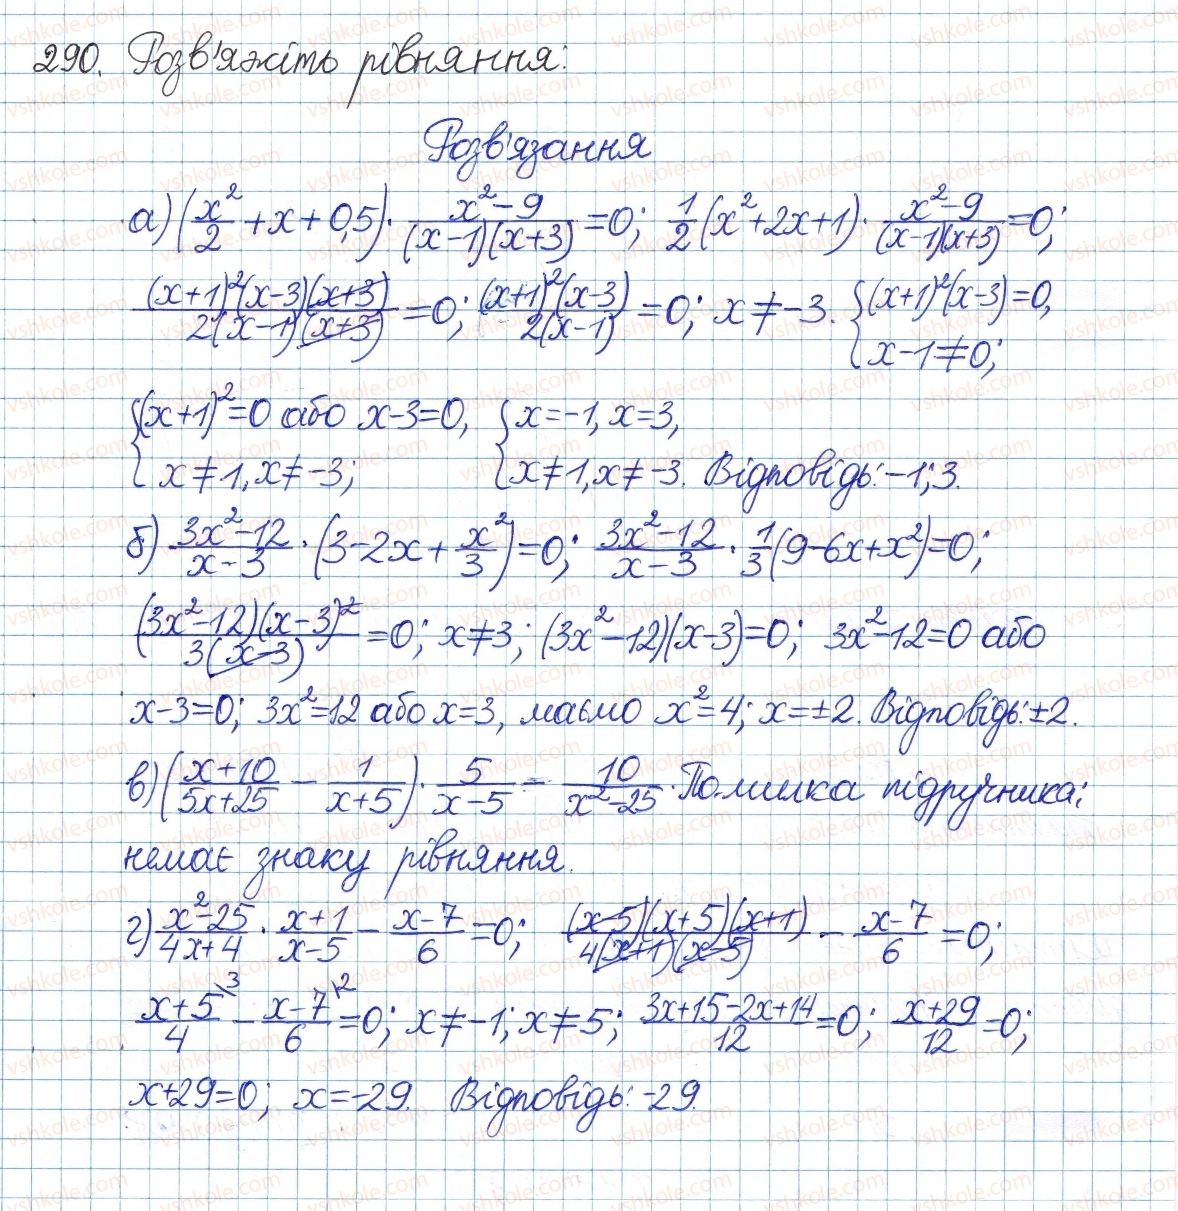 290. Розв'яжіть рівняння:
Розв'язання
а) (x²/2 + x + 0,5) · (x²-9)/((x-1)(x+3)) = 0; 1/2(x²+2x+1) · (x²-9)/((x-1)(x+3)) = 0;
((x+1)²(x-3)(x+3))/(2(x-1)(x+3)) = 0; ((x+1)²(x-3))/(2(x-1)) = 0; x ≠ -3. { (x+1)²(x-3)=0, x-1≠0;
{ (x+1)²=0 або x-3=0, x≠1, x≠-3; { x=-1, x=3, x≠1, x≠-3. Відповідь: -1; 3.
б) (3x²-12)/(x-3) · (3-2x+x²/3) = 0; (3x²-12)/(x-3) · 1/3(9-6x+x²) = 0;
((3x²-12)(x-3)²)/(3(x-3)) = 0; x≠3; (3x²-12)(x-3)=0; 3x²-12=0 або
x-3=0; 3x²=12 або x=3, маємо x²=4; x=±2. Відповідь: ±2.
в) ((x+10)/(5x+25) - 1/(x+5)) · 5/(x-5) - 10/(x²-25). Помилка підручника:
немає знаку рівняння.
г) (x²-25)/(4x+4) · (x+1)/(x-5) - (x-7)/6 = 0; ((x-5)(x+5)(x+1))/(4(x+1)(x-5)) - (x-7)/6 = 0;
(x+5)/4 \3 - (x-7)/6 \2 = 0; x≠-1; x≠5; (3x+15-2x+14)/12 = 0; (x+29)/12 = 0;
x+29=0; x=-29. Відповідь: -29.